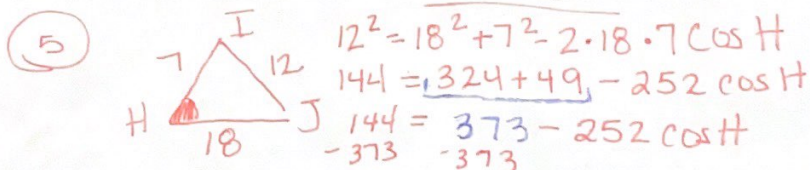 5
I
7
12
H
J
18
12² = 18² + 7² - 2·18·7 Cos H
144 = 324 + 49 - 252 cos H
144 = 373 - 252 cos H
-373 -373